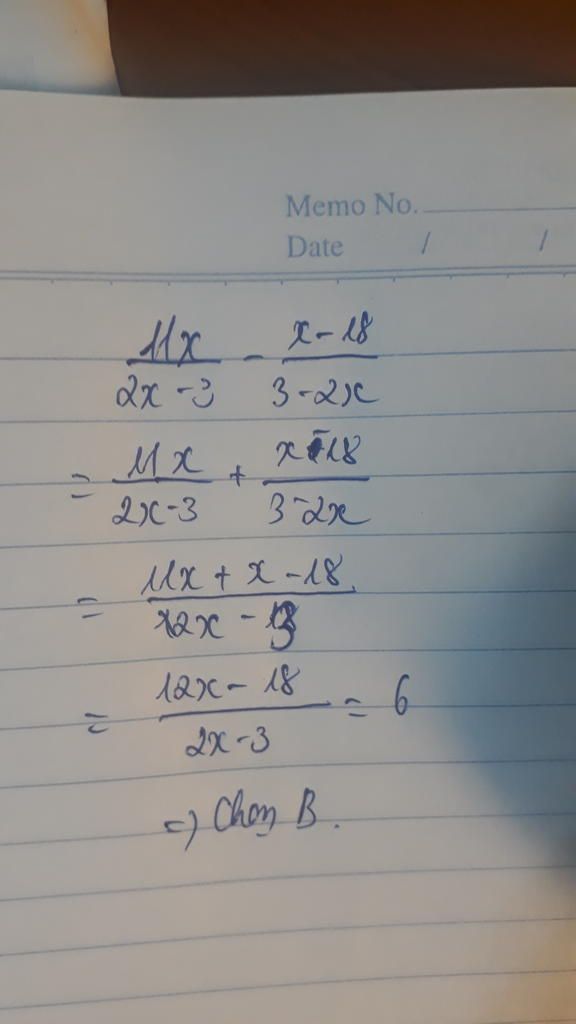 Memo No.
Date / /
11x/(2x-3) - (x-18)/(3-2x)
= 11x/(2x-3) + (x-18)/(3-2x)
= (11x + x - 18)/(2x - 3)
= (12x - 18)/(2x-3) = 6
=> Chọn B.